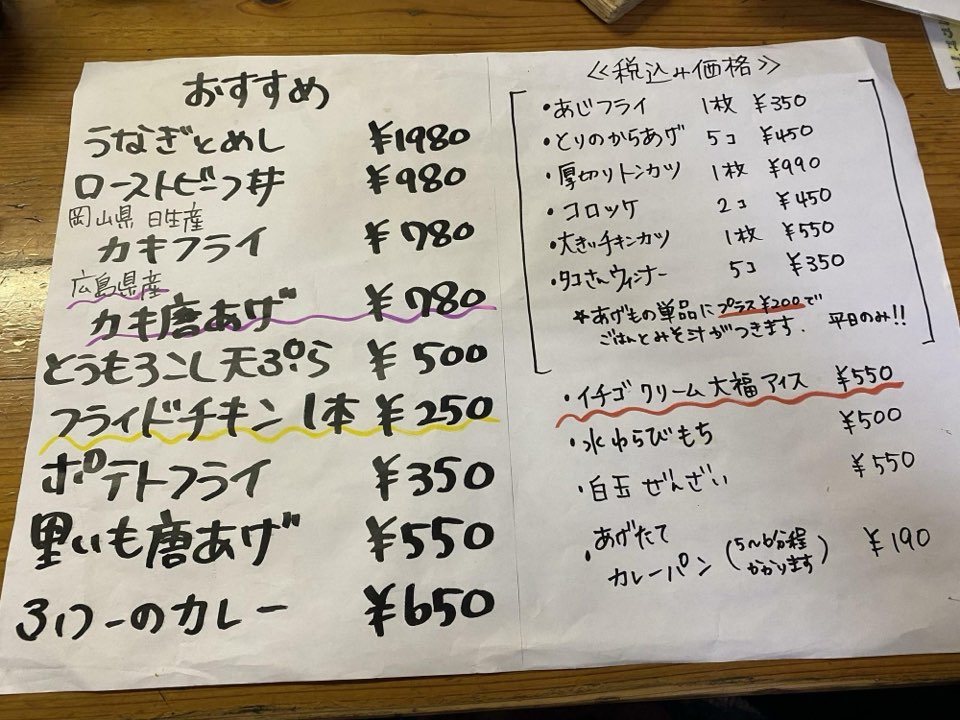 おすすめ
うなぎとめし ¥1980
ローストビーフ丼 ¥980
岡山県 日生産
カキフライ ¥780
広島県産
カキ唐あげ ¥780
とうもろこし天ぷら ¥500
フライドチキン 1本 ¥250
ポテトフライ ¥350
里いも唐あげ ¥550
のカレー ¥650
≪税込み価格≫
・あじフライ 1枚 ¥350
・とりのからあげ 5コ ¥450
・厚切りトンカツ 1枚 ¥990
・コロッケ 2コ ¥450
・大きいチキンカツ 1枚 ¥550
・タコさんウィンナー 5コ ¥350
★あげもの単品にプラス¥200で
ごはんとみそ汁がつきます. 平日のみ!!
・イチゴクリーム大福アイス ¥550
・水わらびもち ¥500
・白玉ぜんざい ¥550
・あげたて
カレーパン (5〜6分程かかります) ¥190